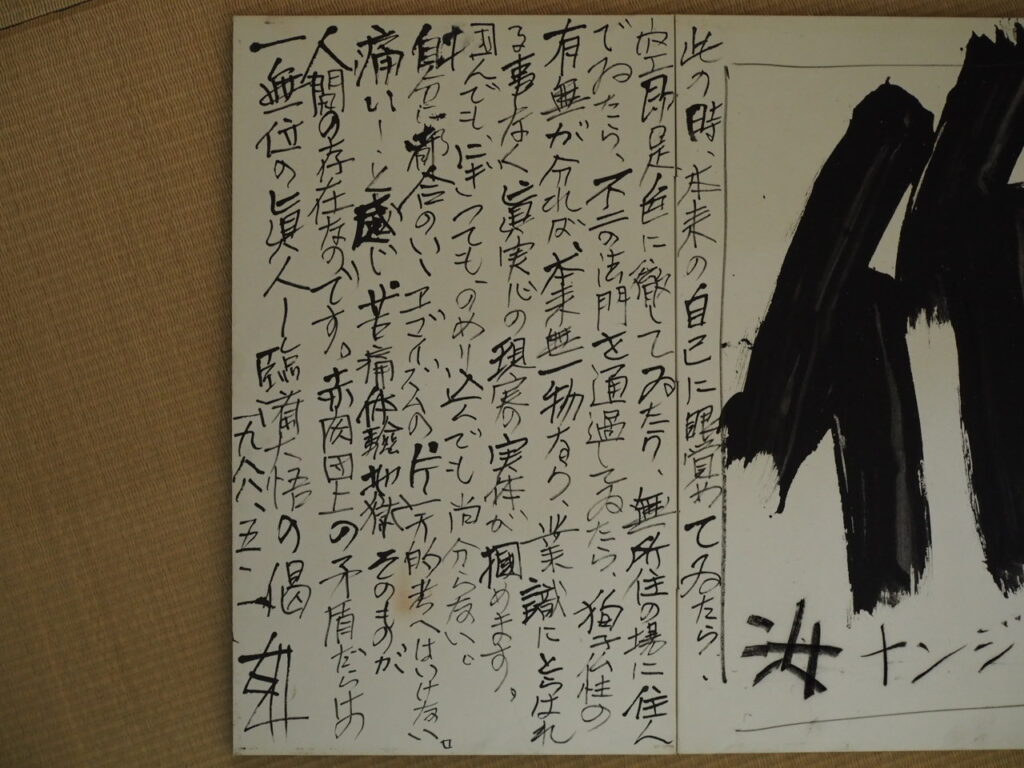 汝 ナンジ
此の時、本来の自己に眼覚めてゐたら、
空即是色に徹してゐたり、無所住の場に住人
でゐたら、不二の法門を通過してゐたら、狗子仏性の
有無が分れば、本来無一物なり、業識にとらはれ
る事なく眞実心の現実の実体が掴めます。
んでも、にぎっても、のめり込んでも尚分らない。
自分に都合のいゝエゴイズムの片一方的考へはいけない。
痛いーと感じ苦痛体験地獄そのものが
人間の存在なのです。赤肉団上の矛盾だらけの
一無位の眞人ー臨済大悟の偈